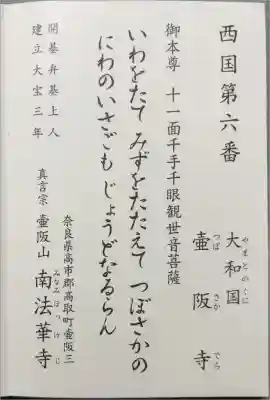 西国第六番
大和国 壷阪寺
やまとのくに つぼさかでら
御本尊 十一面千手千眼観世音菩薩
いわをたて みずをたたえて つぼさかの
にわのいさごも じょうどなるらん
奈良県高市郡高取町壷阪三
真言宗 壷阪山 南法華寺
みなみほっけじ
開基弁基上人
建立大宝三年